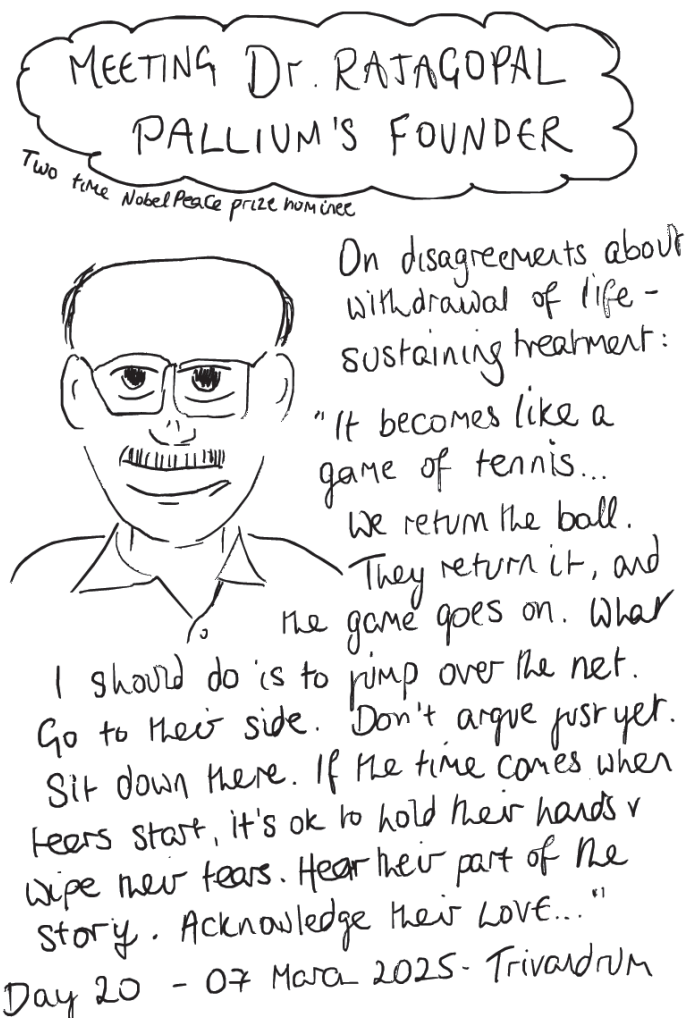 MEETING Dr. RAJAGOPAL
PALLIUM'S FOUNDER
Two time Nobel Peace prize nominee
On disagreements about
withdrawal of life -
sustaining treatment:
"It becomes like a
game of tennis...
We return the ball.
They return it, and
the game goes on. What
I should do is to jump over the net.
Go to their side. Don't argue just yet.
Sit down there. If the time comes when
tears start, it's ok to hold their hands &
wipe their tears. Hear their part of the
story. Acknowledge their LOVE..."
Day 20 - 07 March 2025 - Trivandrum